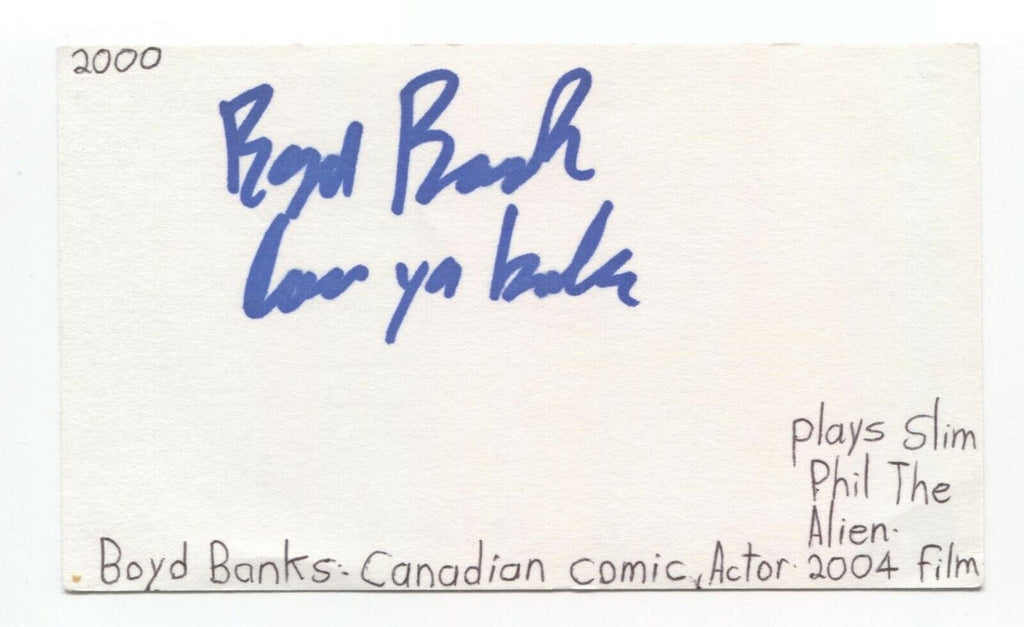 2000
Boyd Banks
love ya
plays Slim
Phil The
Alien.
Boyd Banks. Canadian comic, Actor. 2004 film